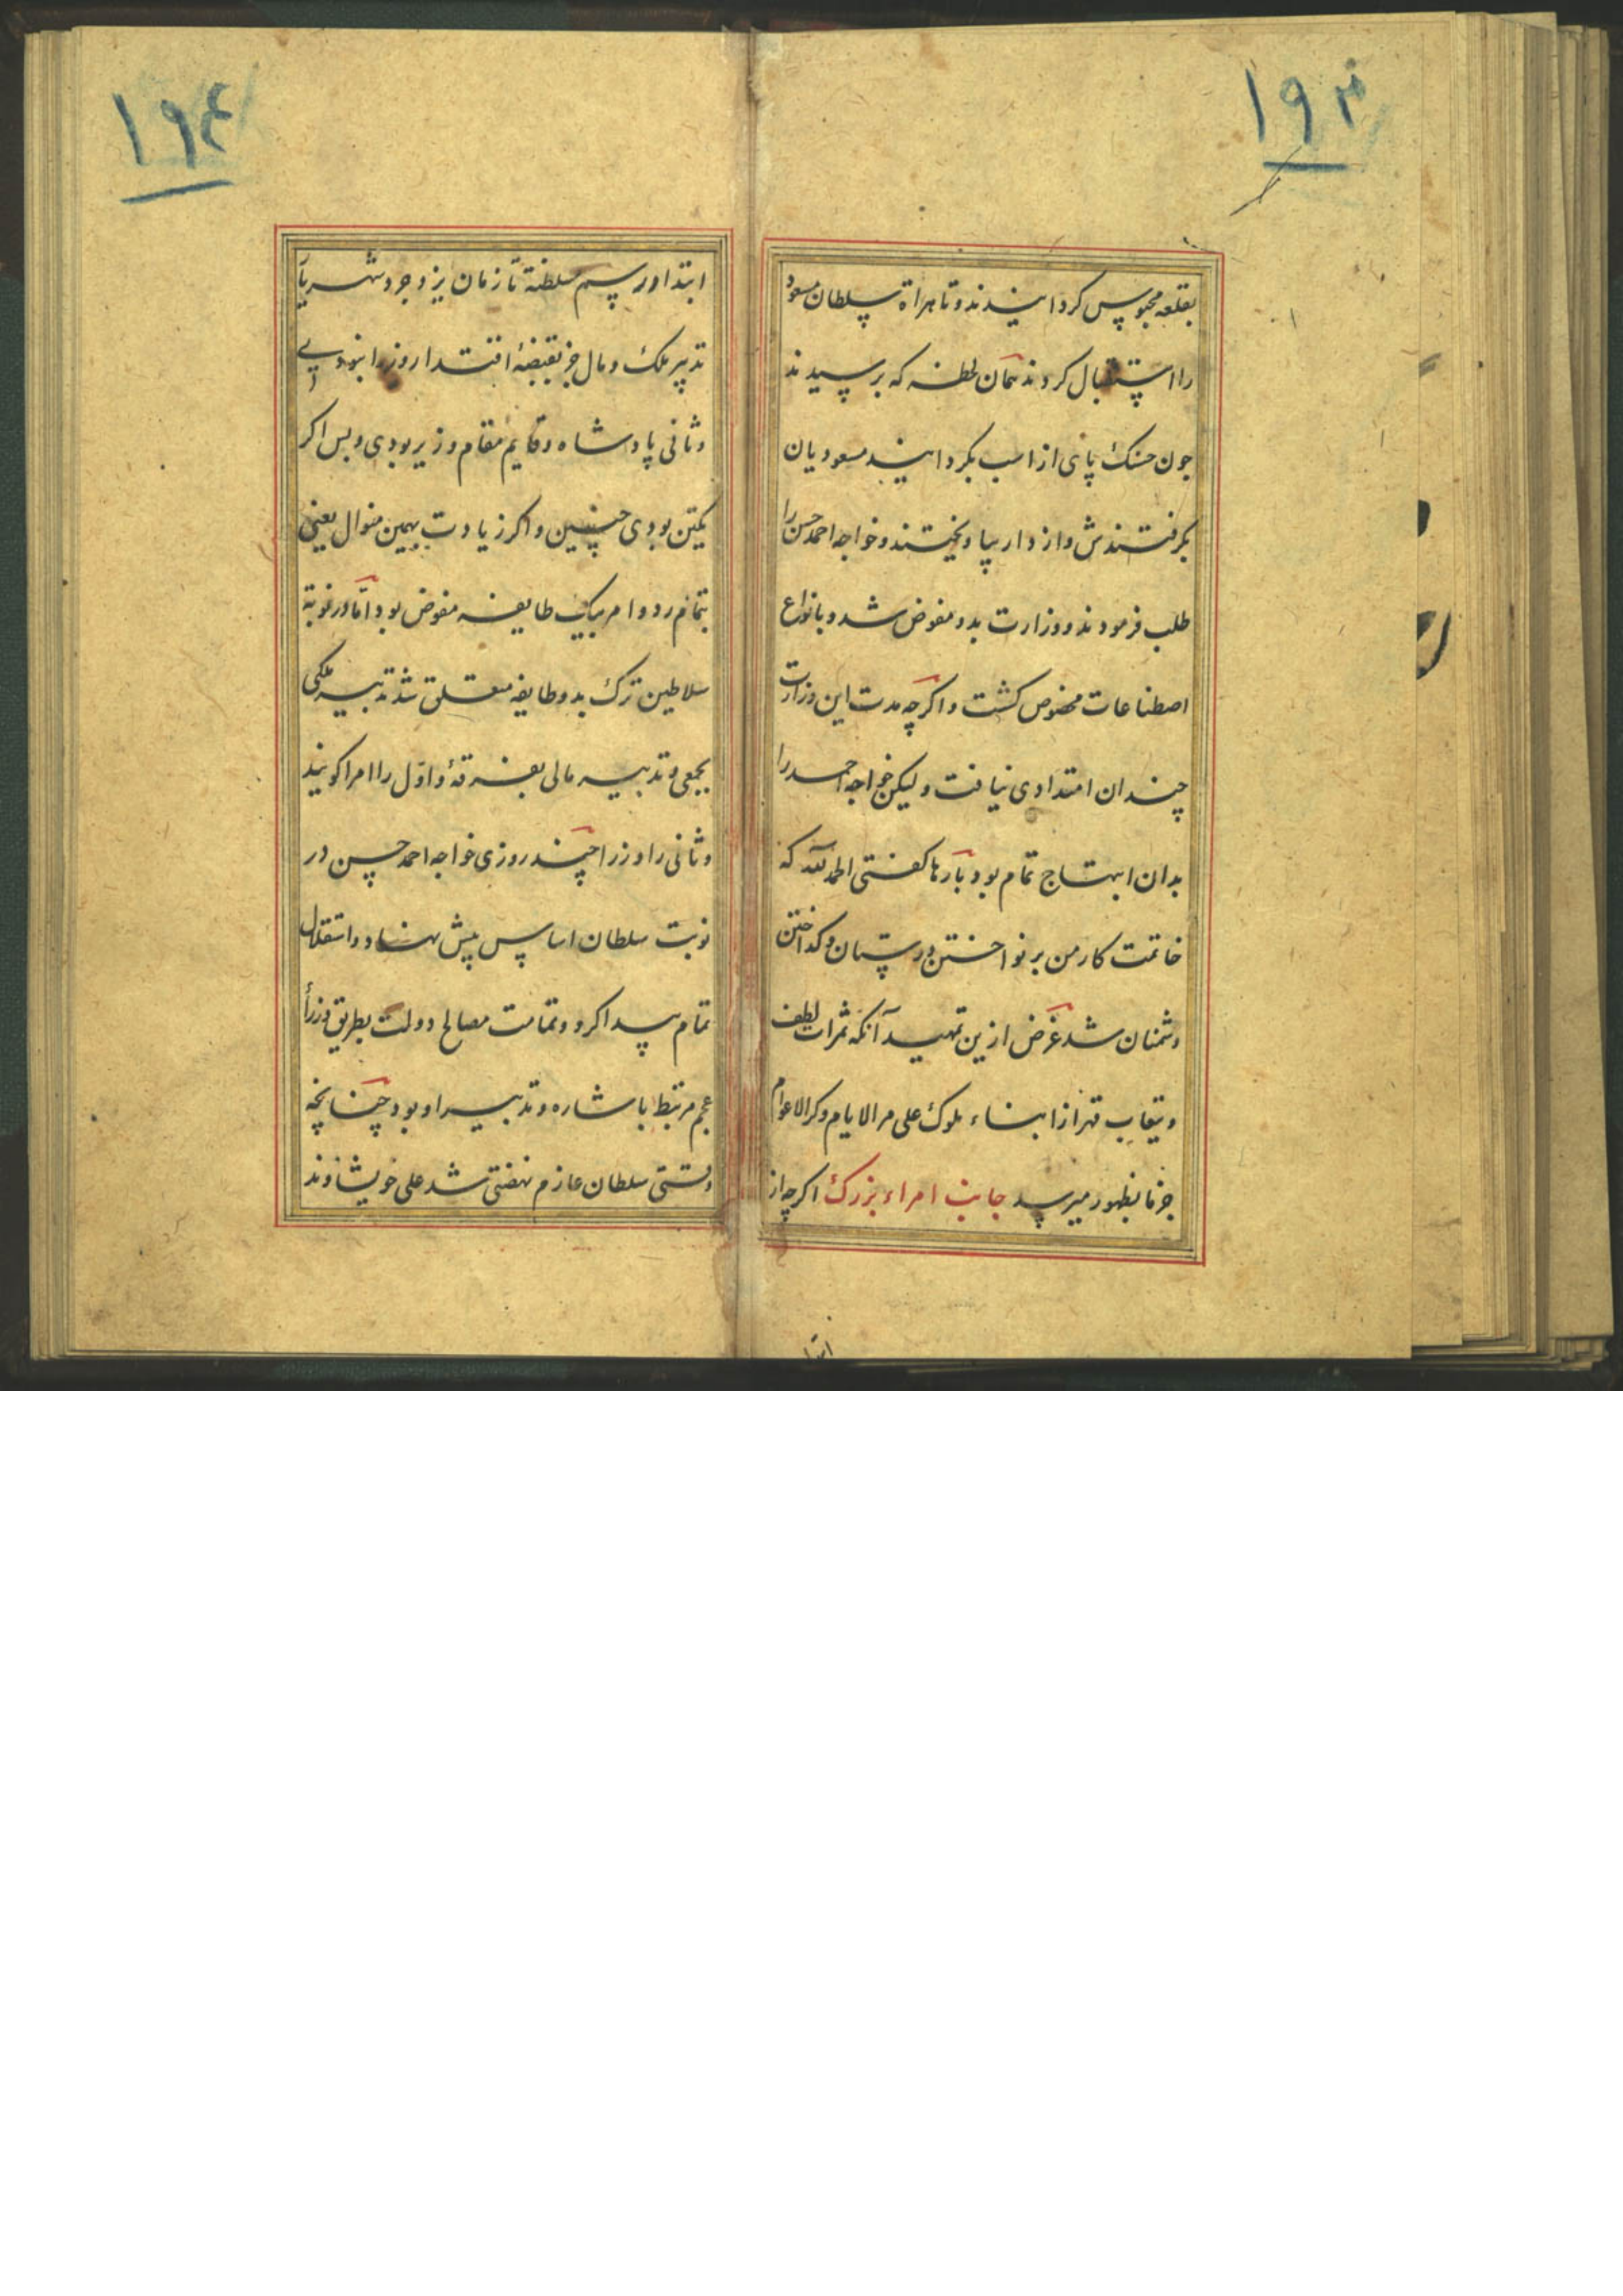 ۱۹۳
بقلعه محبوس کردانیدند و تا هراة سلطان مسعود
را استقبال کردند همان لحظه که برسیدند
جون حسنک پای از اسب بکردانید مسعودیان
بکرفتندش و از دار بیاویختند و خواجه احمد حسن را
طلب فرمودند و وزارت بدو مفوض شد و بانواع
اصطناعات مخصوص کشت و اکرچه مدت این وزارت
چندان امتدادی نیافت ولیکن خواجه احمد را
بدان ابتهاج تمام بود بارها کفتی الحمد لله که
خاتمت کار من بر نواختن دوستان و کداختن
دشمنان شد غرض ازین تمهید آنکه ثمرات لطف
و عقاب قهر از ابناء ملوک علی مر الایام و کر الاعوام
جزما بظهور میرسد جانب امراء بزرک اکرچه از
۱۹۴
ابتدا ور سم سلطنة تا زمان یزدجرد شهریار
تدبیر ملک و مال جز بقبضهٔ اقتدار وزرا نبودی
و ثانی پادشاه و قایم مقام وزیر بودی و بس اکر
یکتن بودی چنین و اکر زیادت بهمین منوال یعنی
تمام رد و امر بیک طایفه مفوض بود اما در نوبة
سلاطین ترک بدو طایفه متعلق شد تدبیر ملکی
بجمعی و تدبیر مالی بفرقهٔ و اول را امرا کویند
و ثانی را وزرا چند روزی خواجه احمد حسن در
نوبت سلطان اساس پیش نهاد و استقلال
تمام پیدا کرد و تمامت مصالح دولت بطریق وزرأ
عجم مرتبط باشاره و تدبیر او بود چنانچه
وقتی سلطان عازم نهضتی شد علی خویشاوند